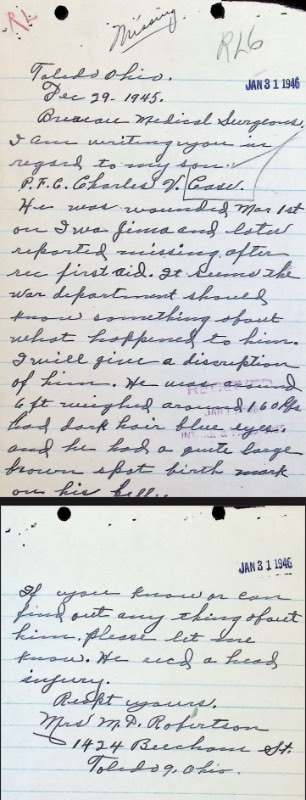 RL
Missing
RL6
JAN 31 1946
Toledo Ohio.
Dec 29- 1945.
Bureau Medical Surgeons.
I am writing you in
regard to my son.
P.F.C. Charles V. Case.
He was wounded Mar 1st
on Iwo Jima and later
reported missing after
rec first aid. It seems the
war department should
know something about
what happened to him.
I will give a discreption
of him. He was around
6 ft weighed around 160 lbs
had dark hair blue eyes
and he had a quite large
brown spot birth mark
on his
JAN 31 1946
If you know or can
find out any thing about
him. please let me
know. He recd a head
injury.
Respt yours.
Mrs M.D. Robertson
1424 Beecham St.
Toledo 9. Ohio.